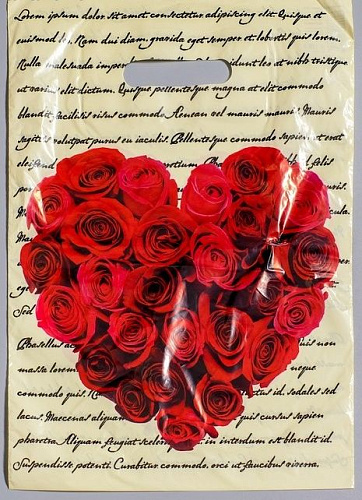 Lorem ipsum dolor sit amet, consectetur adipiscing elit. Quisque et
euismod leo. Nam dui diam, gravida eget semper et, lobortis quis lorem.
Nulla malesuada idunt leo at nibh tristique
ut varius elit dictum. Quisque pellentesque magna at elit commodo
blandit, facilisis risus commodo. Aenean vel mauris mauris. Mauris
sagittis volutpat purus eu iaculis. Pellentesque commodo sapien erat
eleifend pretium. felis
Sed
Phasellus quis non
massa lorem neque
commodo quis id, sodales sed
lacus. Maecenas aliquam quis cursus sapien
pharetra. Aliquam feugiat in interdum est blandit id.
Suspendisse potenti. Curabitur commodo, orci ut faucibus viverra,